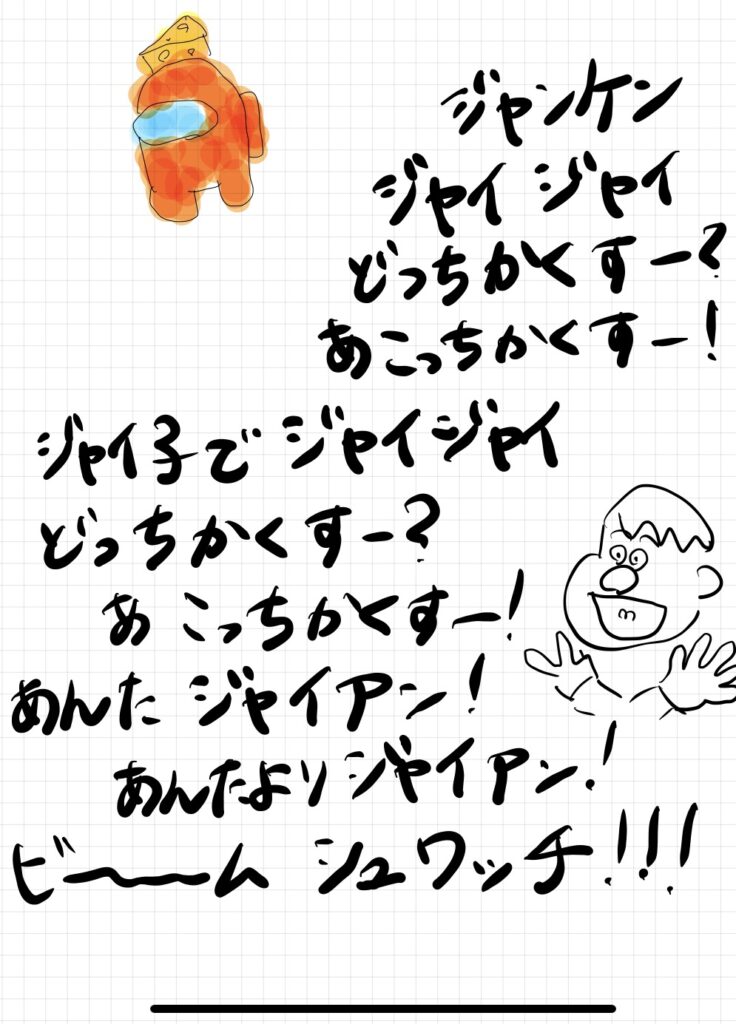 ジャンケン
ジャイ ジャイ
どっちかくすー?
あこっちかくすー!
ジャイ子で ジャイジャイ
どっちかくすー?
あ こっちかくすー!
あんた ジャイアン!
あんたより ジャイアン!
ビ〜〜ム シュワッチ!!!